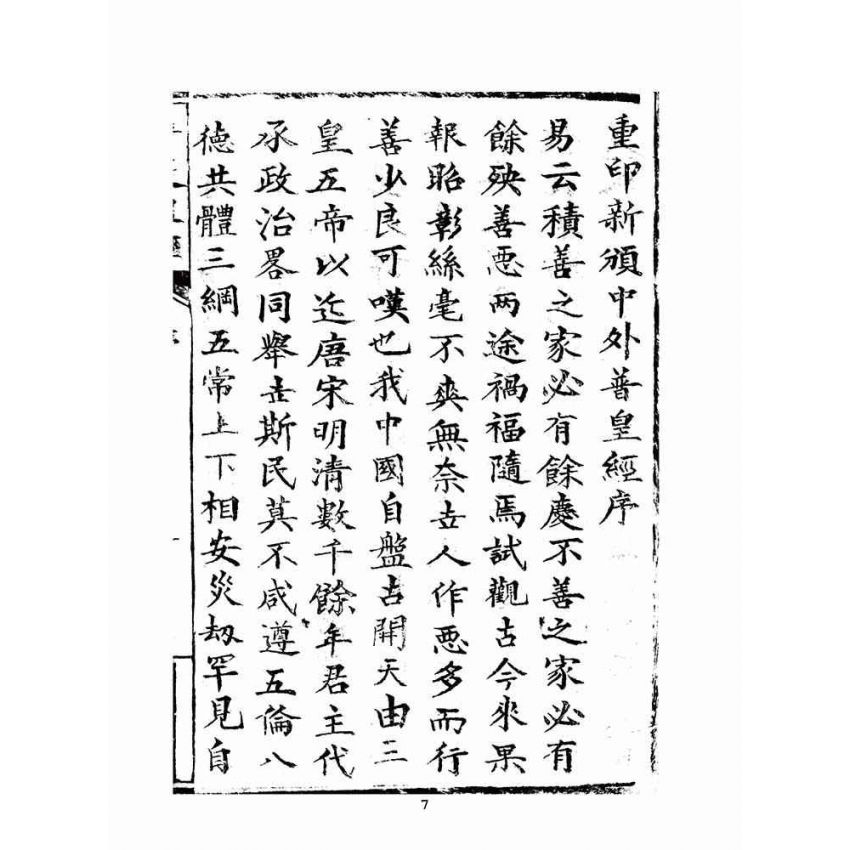 重印新頒中外普皇經序
易云積善之家必有餘慶不善之家必有
餘殃善惡兩途禍福隨焉試觀古今來果
報昭彰絲毫不爽無奈世人作惡多而行
善少良可嘆也我中國自盤古開天由三
皇五帝以迄唐宋明清數千餘年君主代
承政治畧同舉世斯民莫不咸遵五倫八
德共體三綱五常上下相安災劫罕見自
序
7